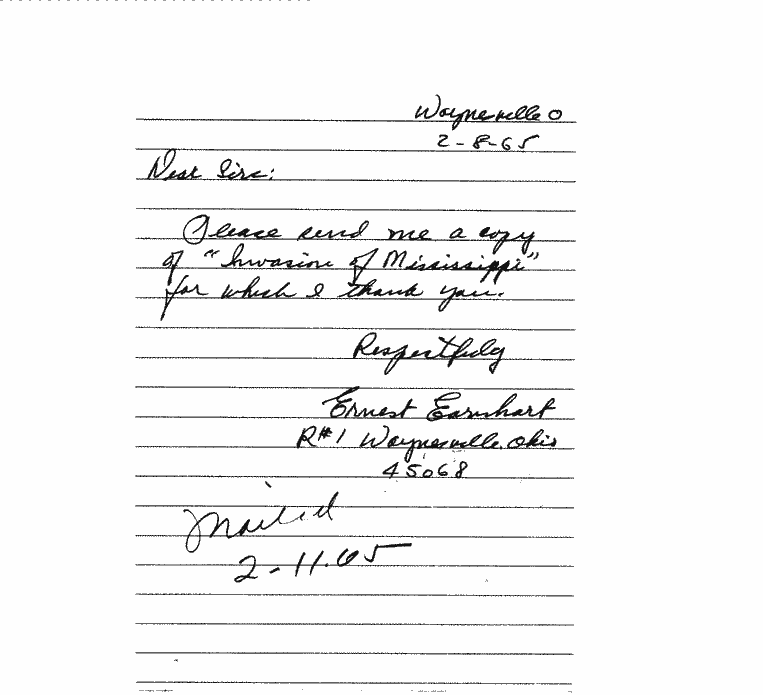 Waynesville O
2-8-65
Dear Sirs:
Please send me a copy
of "Invasion of Mississippi"
for which I thank you.
Respectfuly
Ernest Earnhart
R#1 Waynesville, Ohio
45068
Mailed
2-11-65